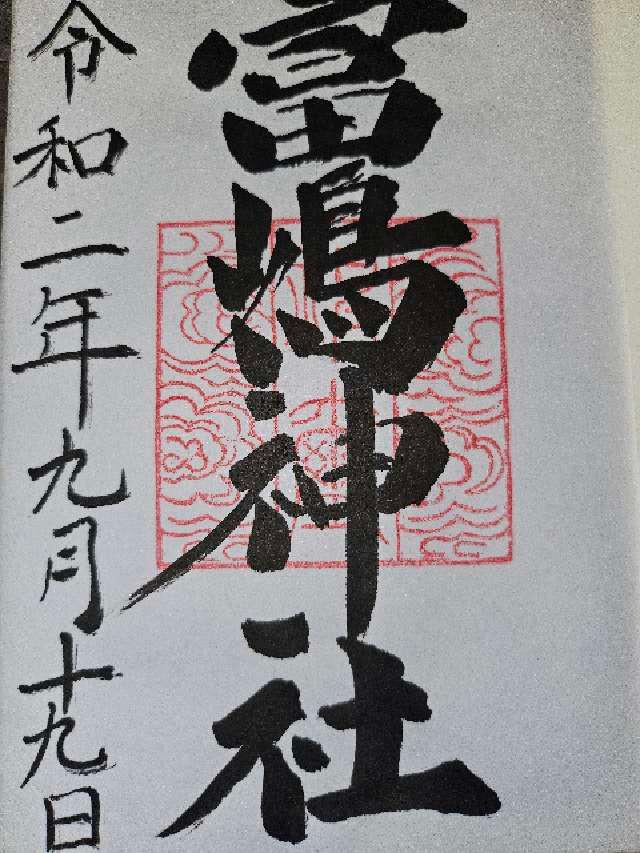 富嶋神社
令和二年九月十九日